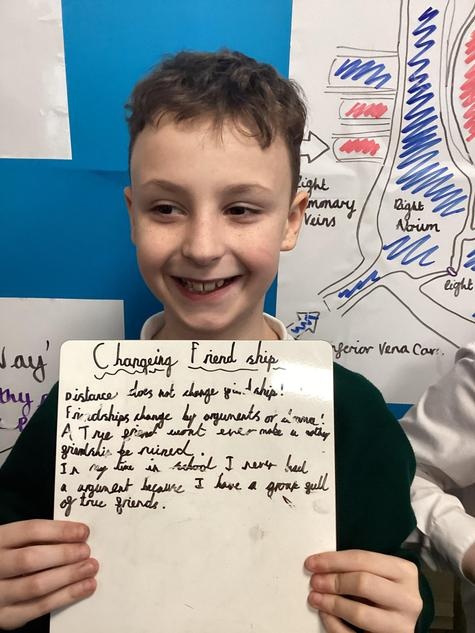 Changeing Friend ship
Distance does not change
Friendships change by arguments or
A True friend wont ever make a nothy
friendship be ruined.
In my time in school I never had
a argument because I have a group full
of true friends.
Right
Pulmonary
Veins
Right
Atrium
Right
Inferior Vena Cava.
Way'